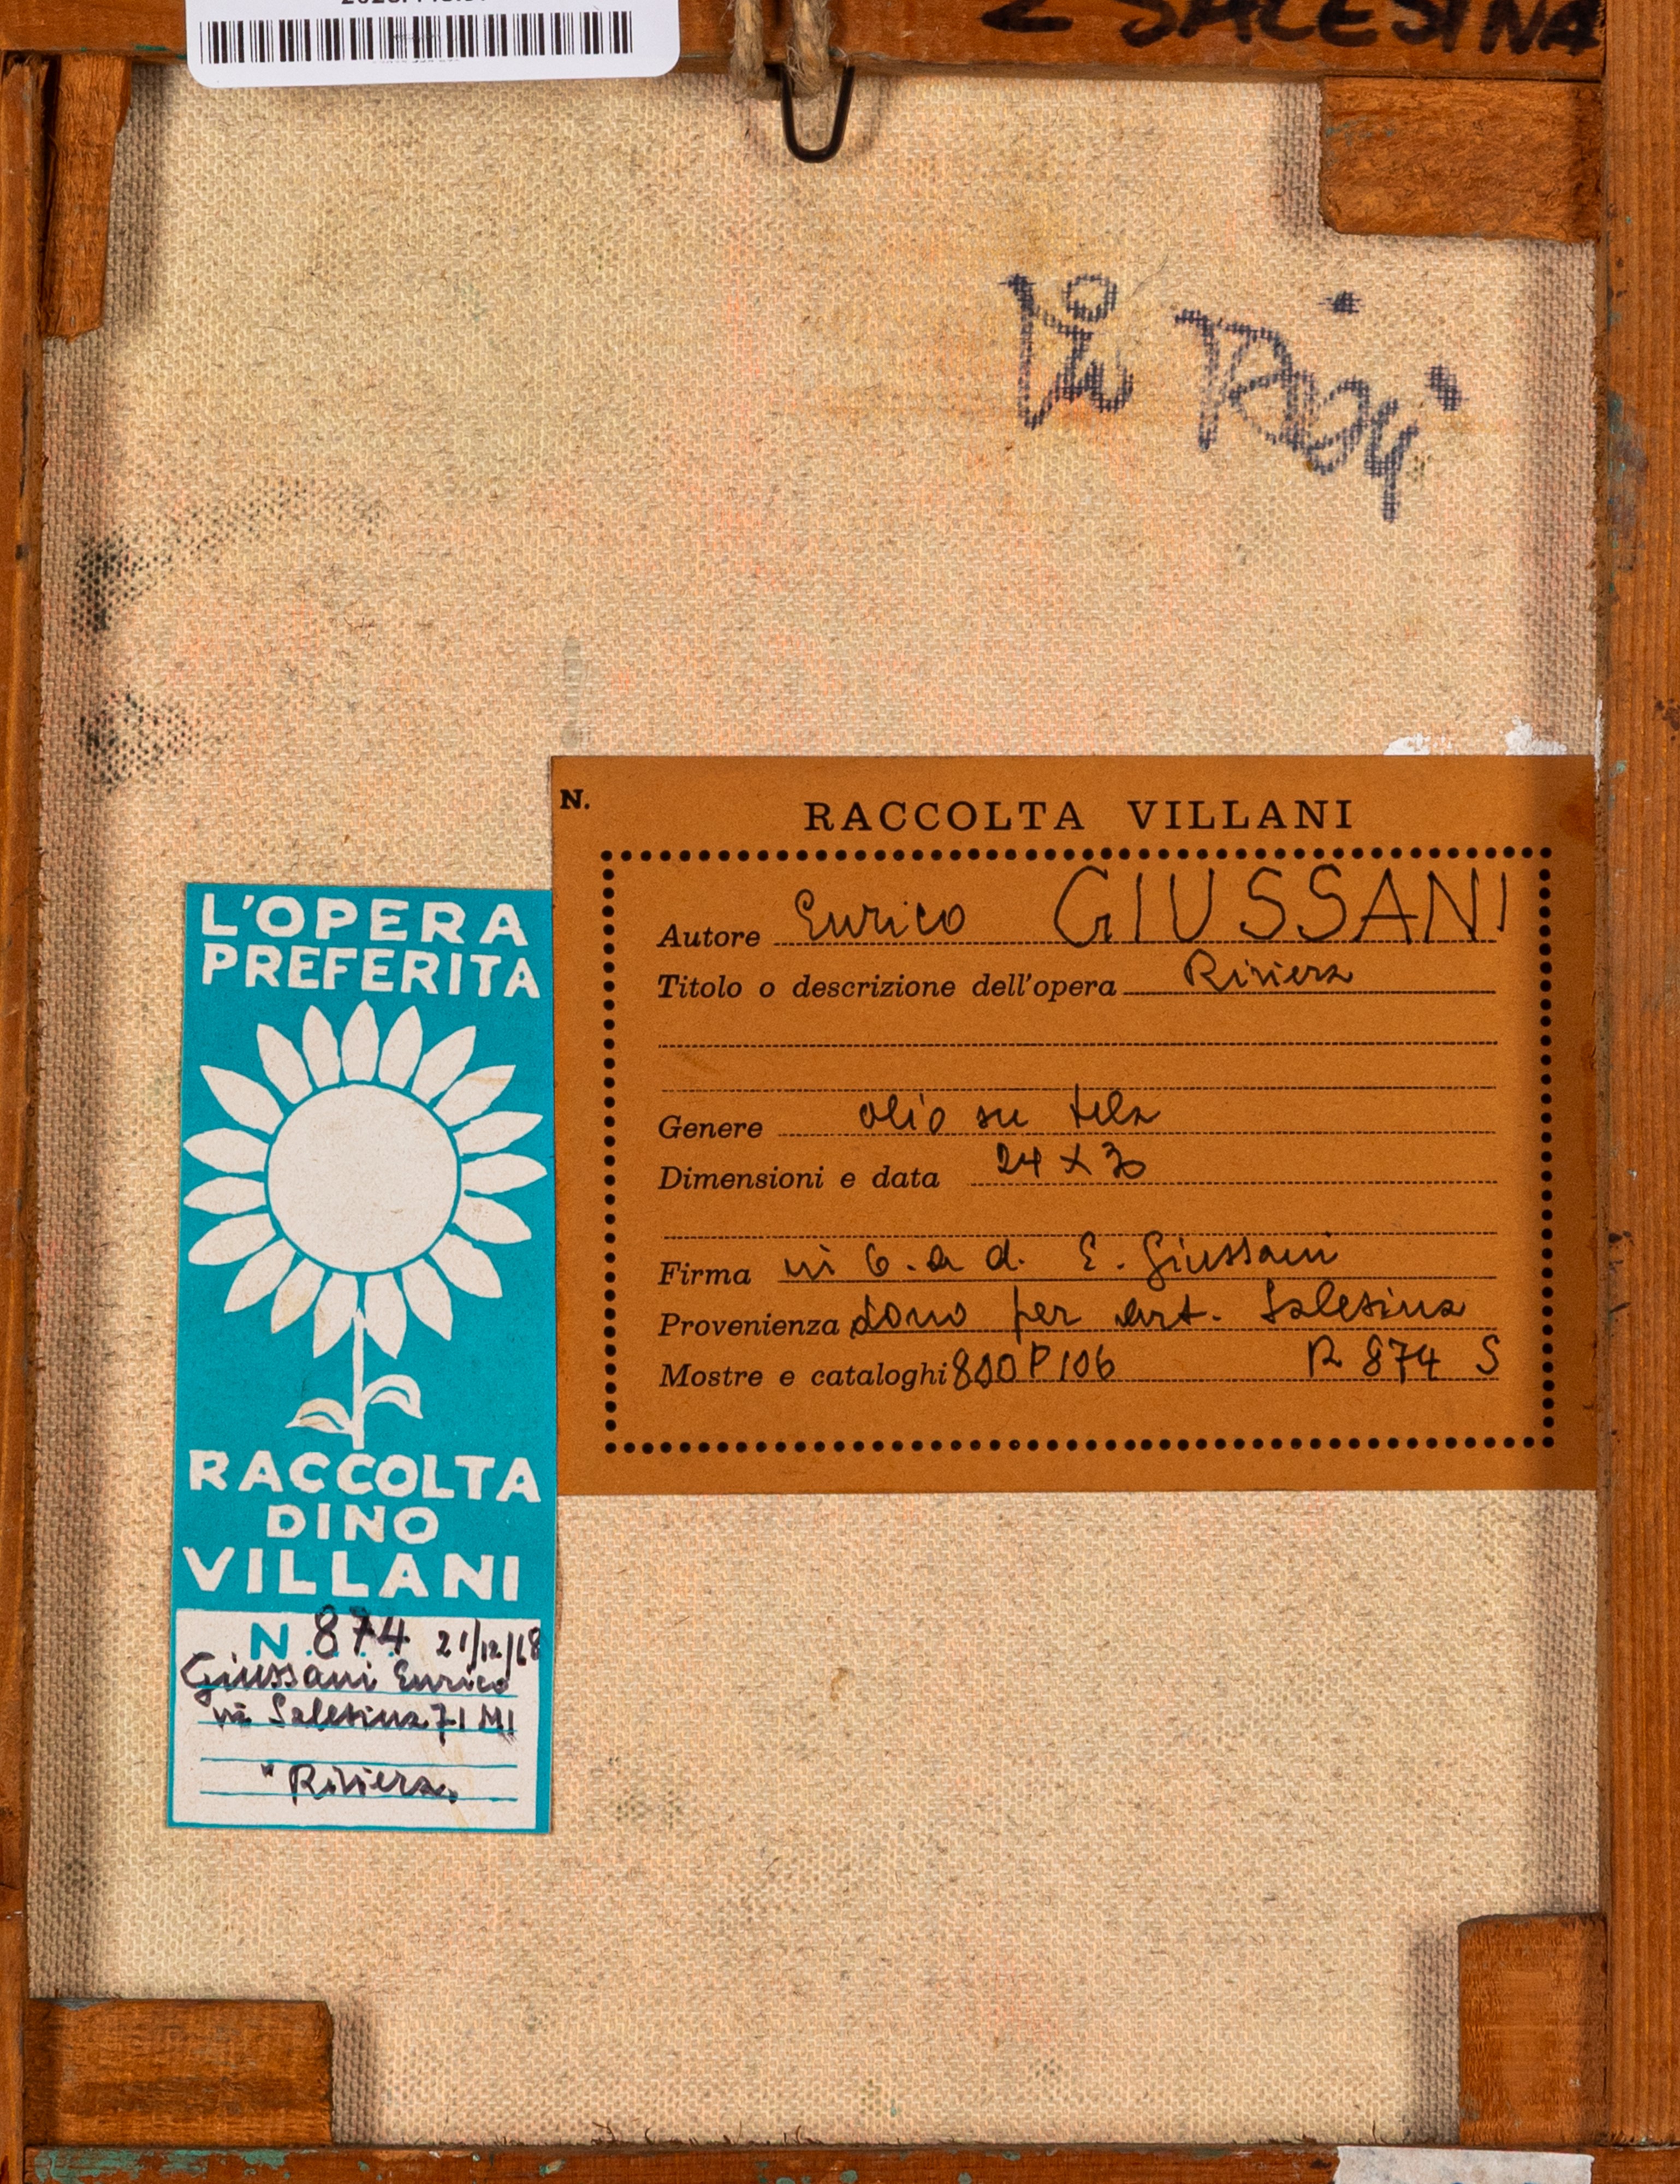 2 SALESINA
N.
RACCOLTA VILLANI
Autore Enrico GIUSSANI
Titolo o descrizione dell'opera Riviera
Genere olio su tela
Dimensioni e data 24 x 30
Firma in b. a d. E. Giussani
Provenienza dono per art. Salesina
Mostre e cataloghi 800 P 106 R 874 S
L'OPERA
PREFERITA
RACCOLTA
DINO
VILLANI
N. 874 21/12/68
Giussani Enrico
via Salesina 71 MI
"Riviera"